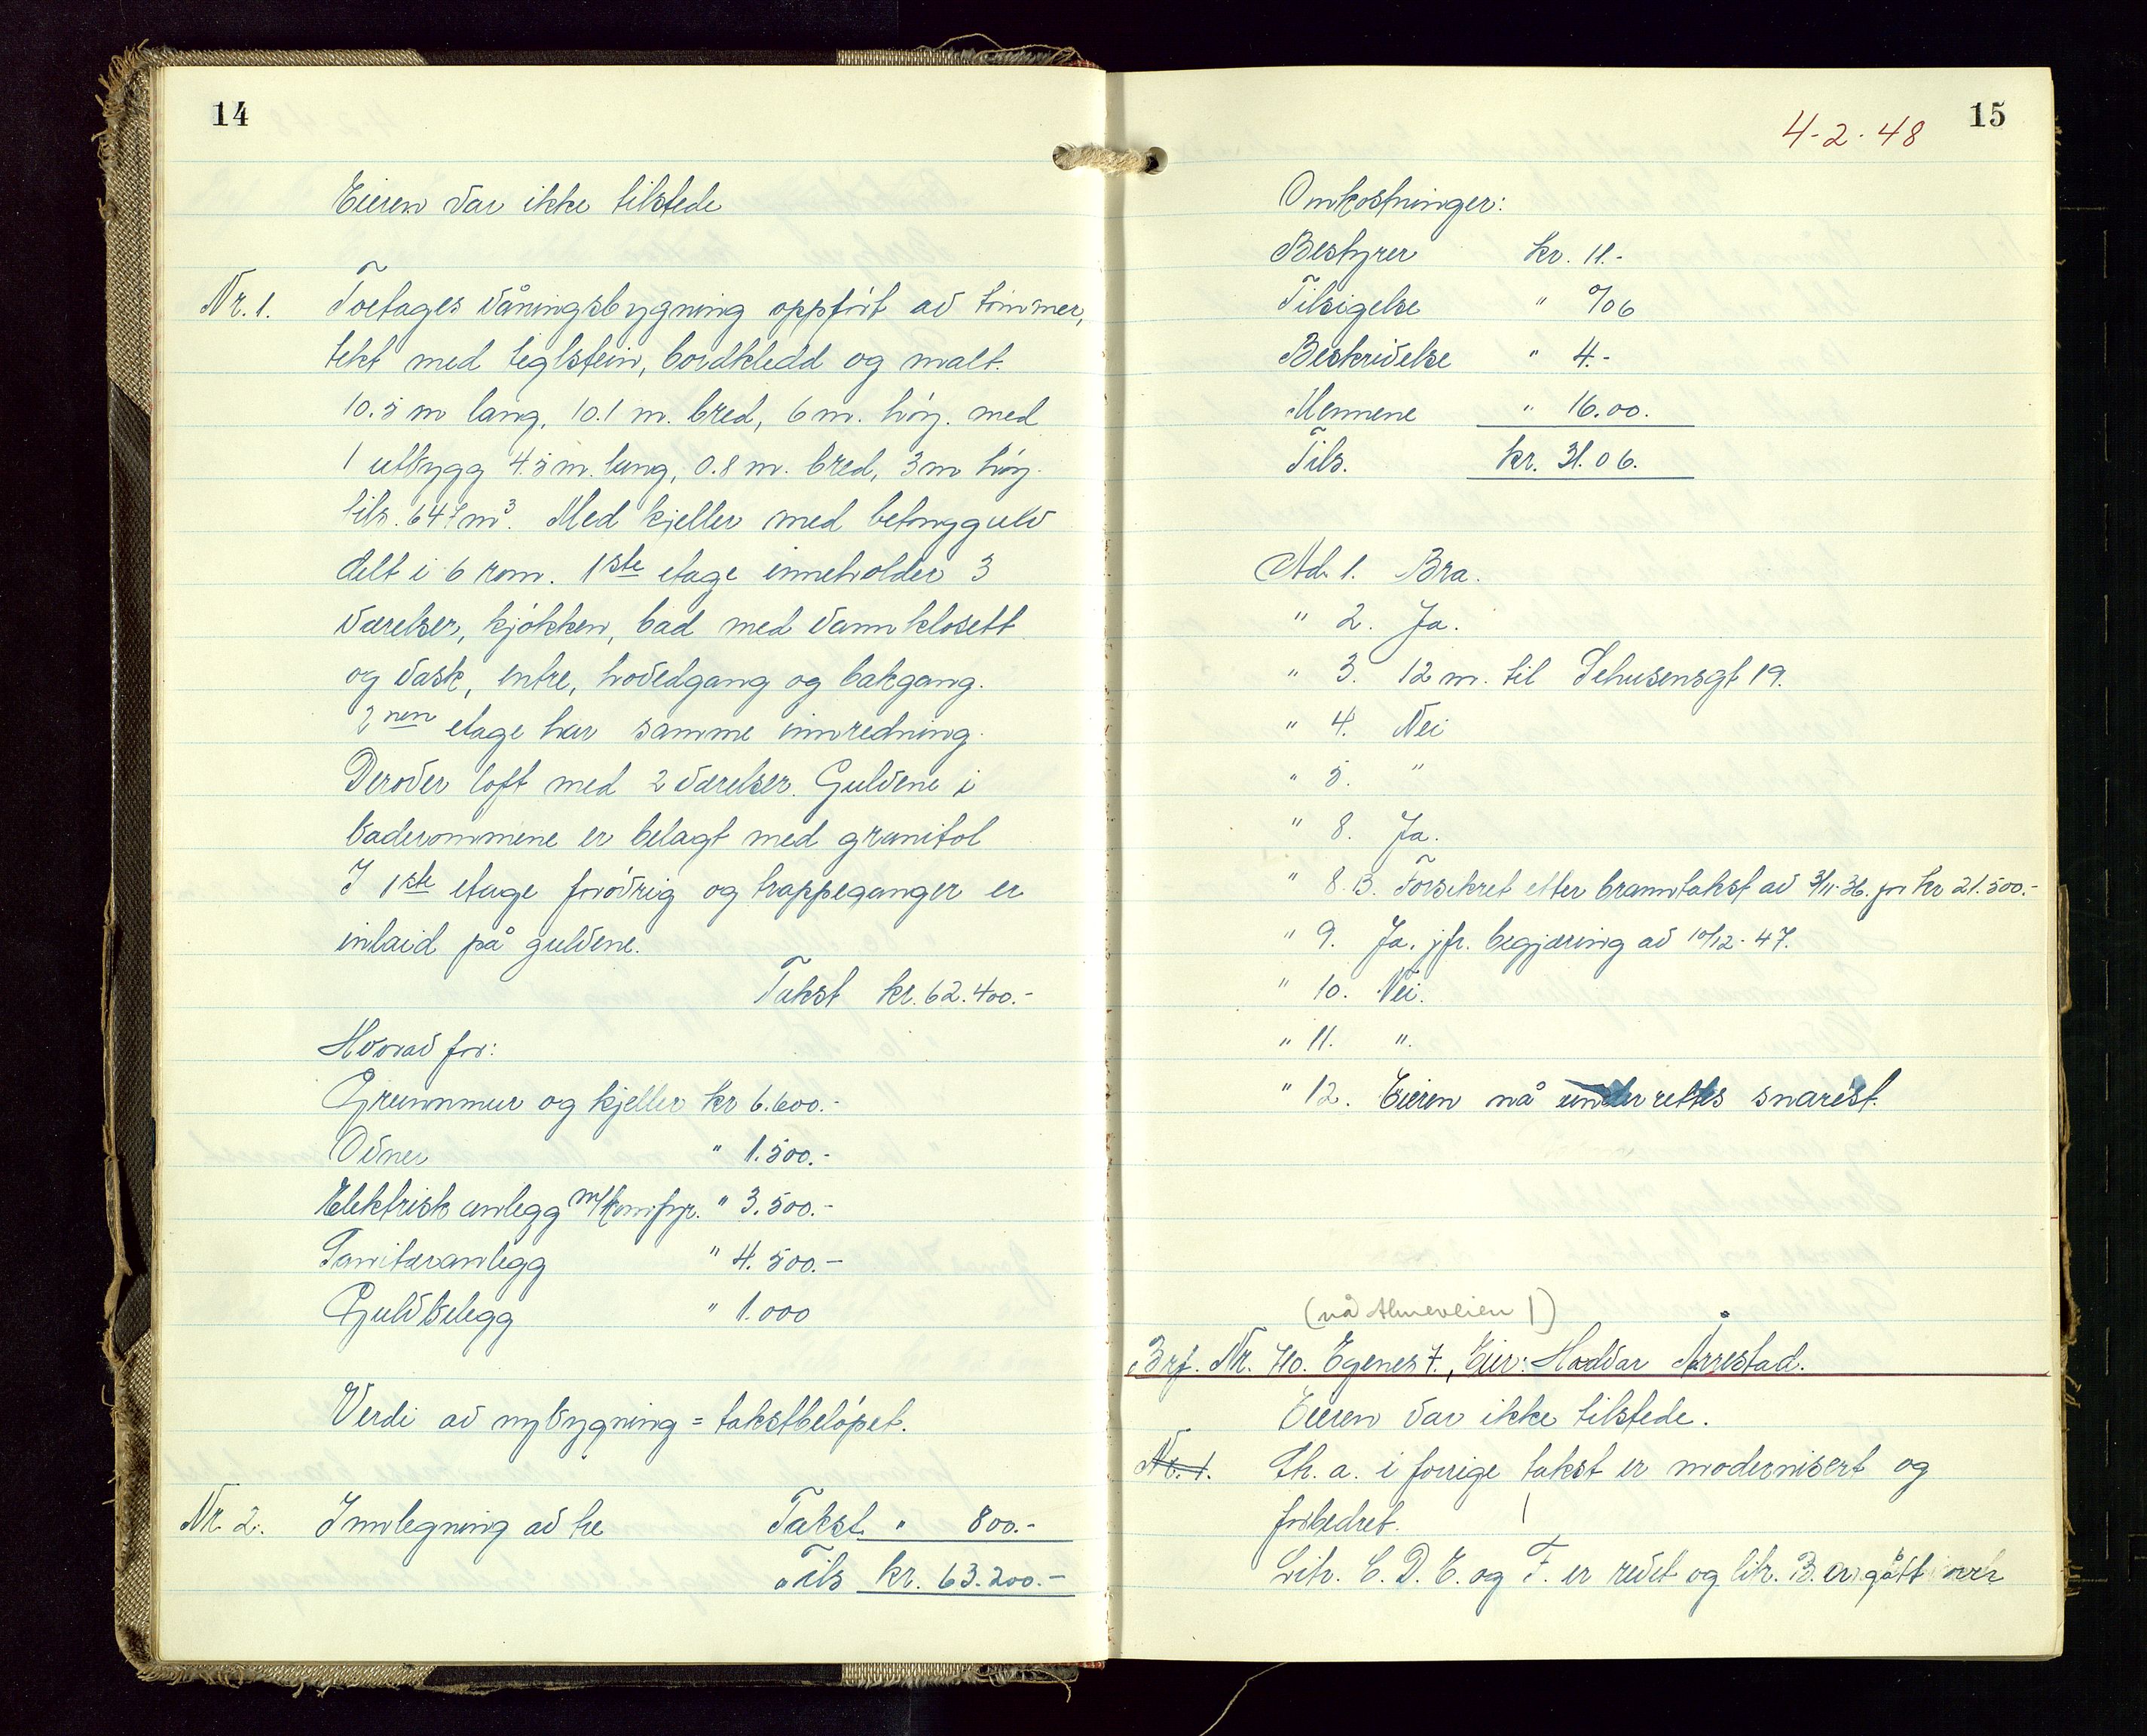 14
Eieren var ikke tilstede
Nr. 1. Toetages våningsbygning oppført av tømmer,
tekt med teglstein, bordkledd og malt.
10.5 m lang, 10.1 m. bred, 6 m. høy. med
1 utbygg 4.5 m. lang, 0.8 m. bred, 3 m høy.
tils. 647 m³. Med kjeller med betonggulv
delt i 6 rom. 1ste etage inneholder 3
værelser, kjøkken, bad med vannklosett
og vask, entre, hovedgang og bakgang.
2nen etage har samme innredning.
Derover loft med 2 værelser. Gulvene i
baderommene er belagt med granitol
I 1ste etage forøvrig og trappeganger er
inlaid på gulvene.
Takst kr. 62.400.-
Hvorav for:
Grunnmur og kjeller kr 6.600.-
Ovner " 1.500.-
Elektrisk anlegg m/komfyr. " 3.500.-
Sanitæranlegg " 4.500.-
Gulvbelegg " 1.000
Verdi av nybygning = takstbeløpet.
Nr. 2. Innlegning av tre Takst " 800.-
Tils kr. 63.200.-
15
4-2-48
Omkostninger:
Bestyrer kr. 11.-
Tilsigelse " 0/06
Beskrivelse " 4.-
Mennene " 16.00.
Tils. kr. 31.06.
Ad. 1. Bra.
" 2. Ja.
" 3. 12 m. til Sehusensgt 19.
" 4. Nei
" 5. "
" 8. Ja.
" 8.B. Forsikret etter branntakst av 3/11-36. for kr 21.500.-
" 9. Ja, jfr. begjæring av 10/12-47.
" 10. Nei.
" 11. ".
" 12. Eieren må underrettes snarest.
(nå Almeveien 1)
Brf. Nr. 710. Egenes 7., Eier: Hodvar Årrestad.
Eieren var ikke tilstede.
Nr. 1. Lh. a. i forrige takst er modernisert og
forbedret.
Litr. C. D. E. og F. er revet og litr. B. er gått over